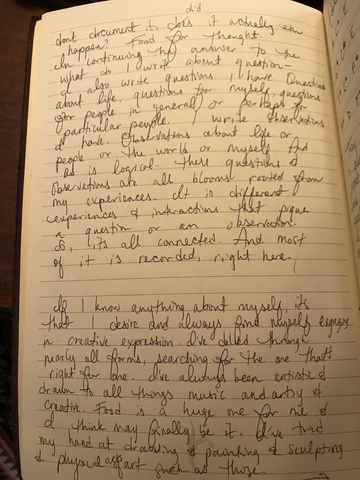 did
dont document it, does it actually even
happen? Food for thought.
In continuing the answer to the
what do I write about question-
I also write questions I have. Questions
about life, questions for myself, questions
for people in general or perhaps for
particular people. I write observations
I have. Observations about life or
people or the world or myself. And
as is logical- these questions &
observations are all blooms rooted from
my experiences. It is different
experiences & interactions that pique
a question or an observation.
So, it's all connected. And most
of it is recorded, right here.
If I know anything about myself, it's
that I desire and always find myself engaging
in creative expression. I've dabbled through
nearly all forms, searching for the one that's
right for me. I've always been entisted &
drawn to all things music and artsy &
creative. Food is a huge one for me &
I think may finally be it. I've tried
my hand at drawing & painting & sculpting
& physical art such as those.